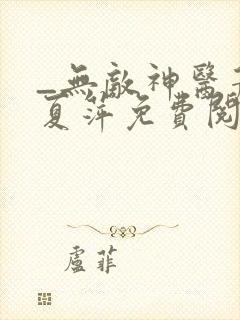 _無敵神醫
夏萍免費閱
盧菲